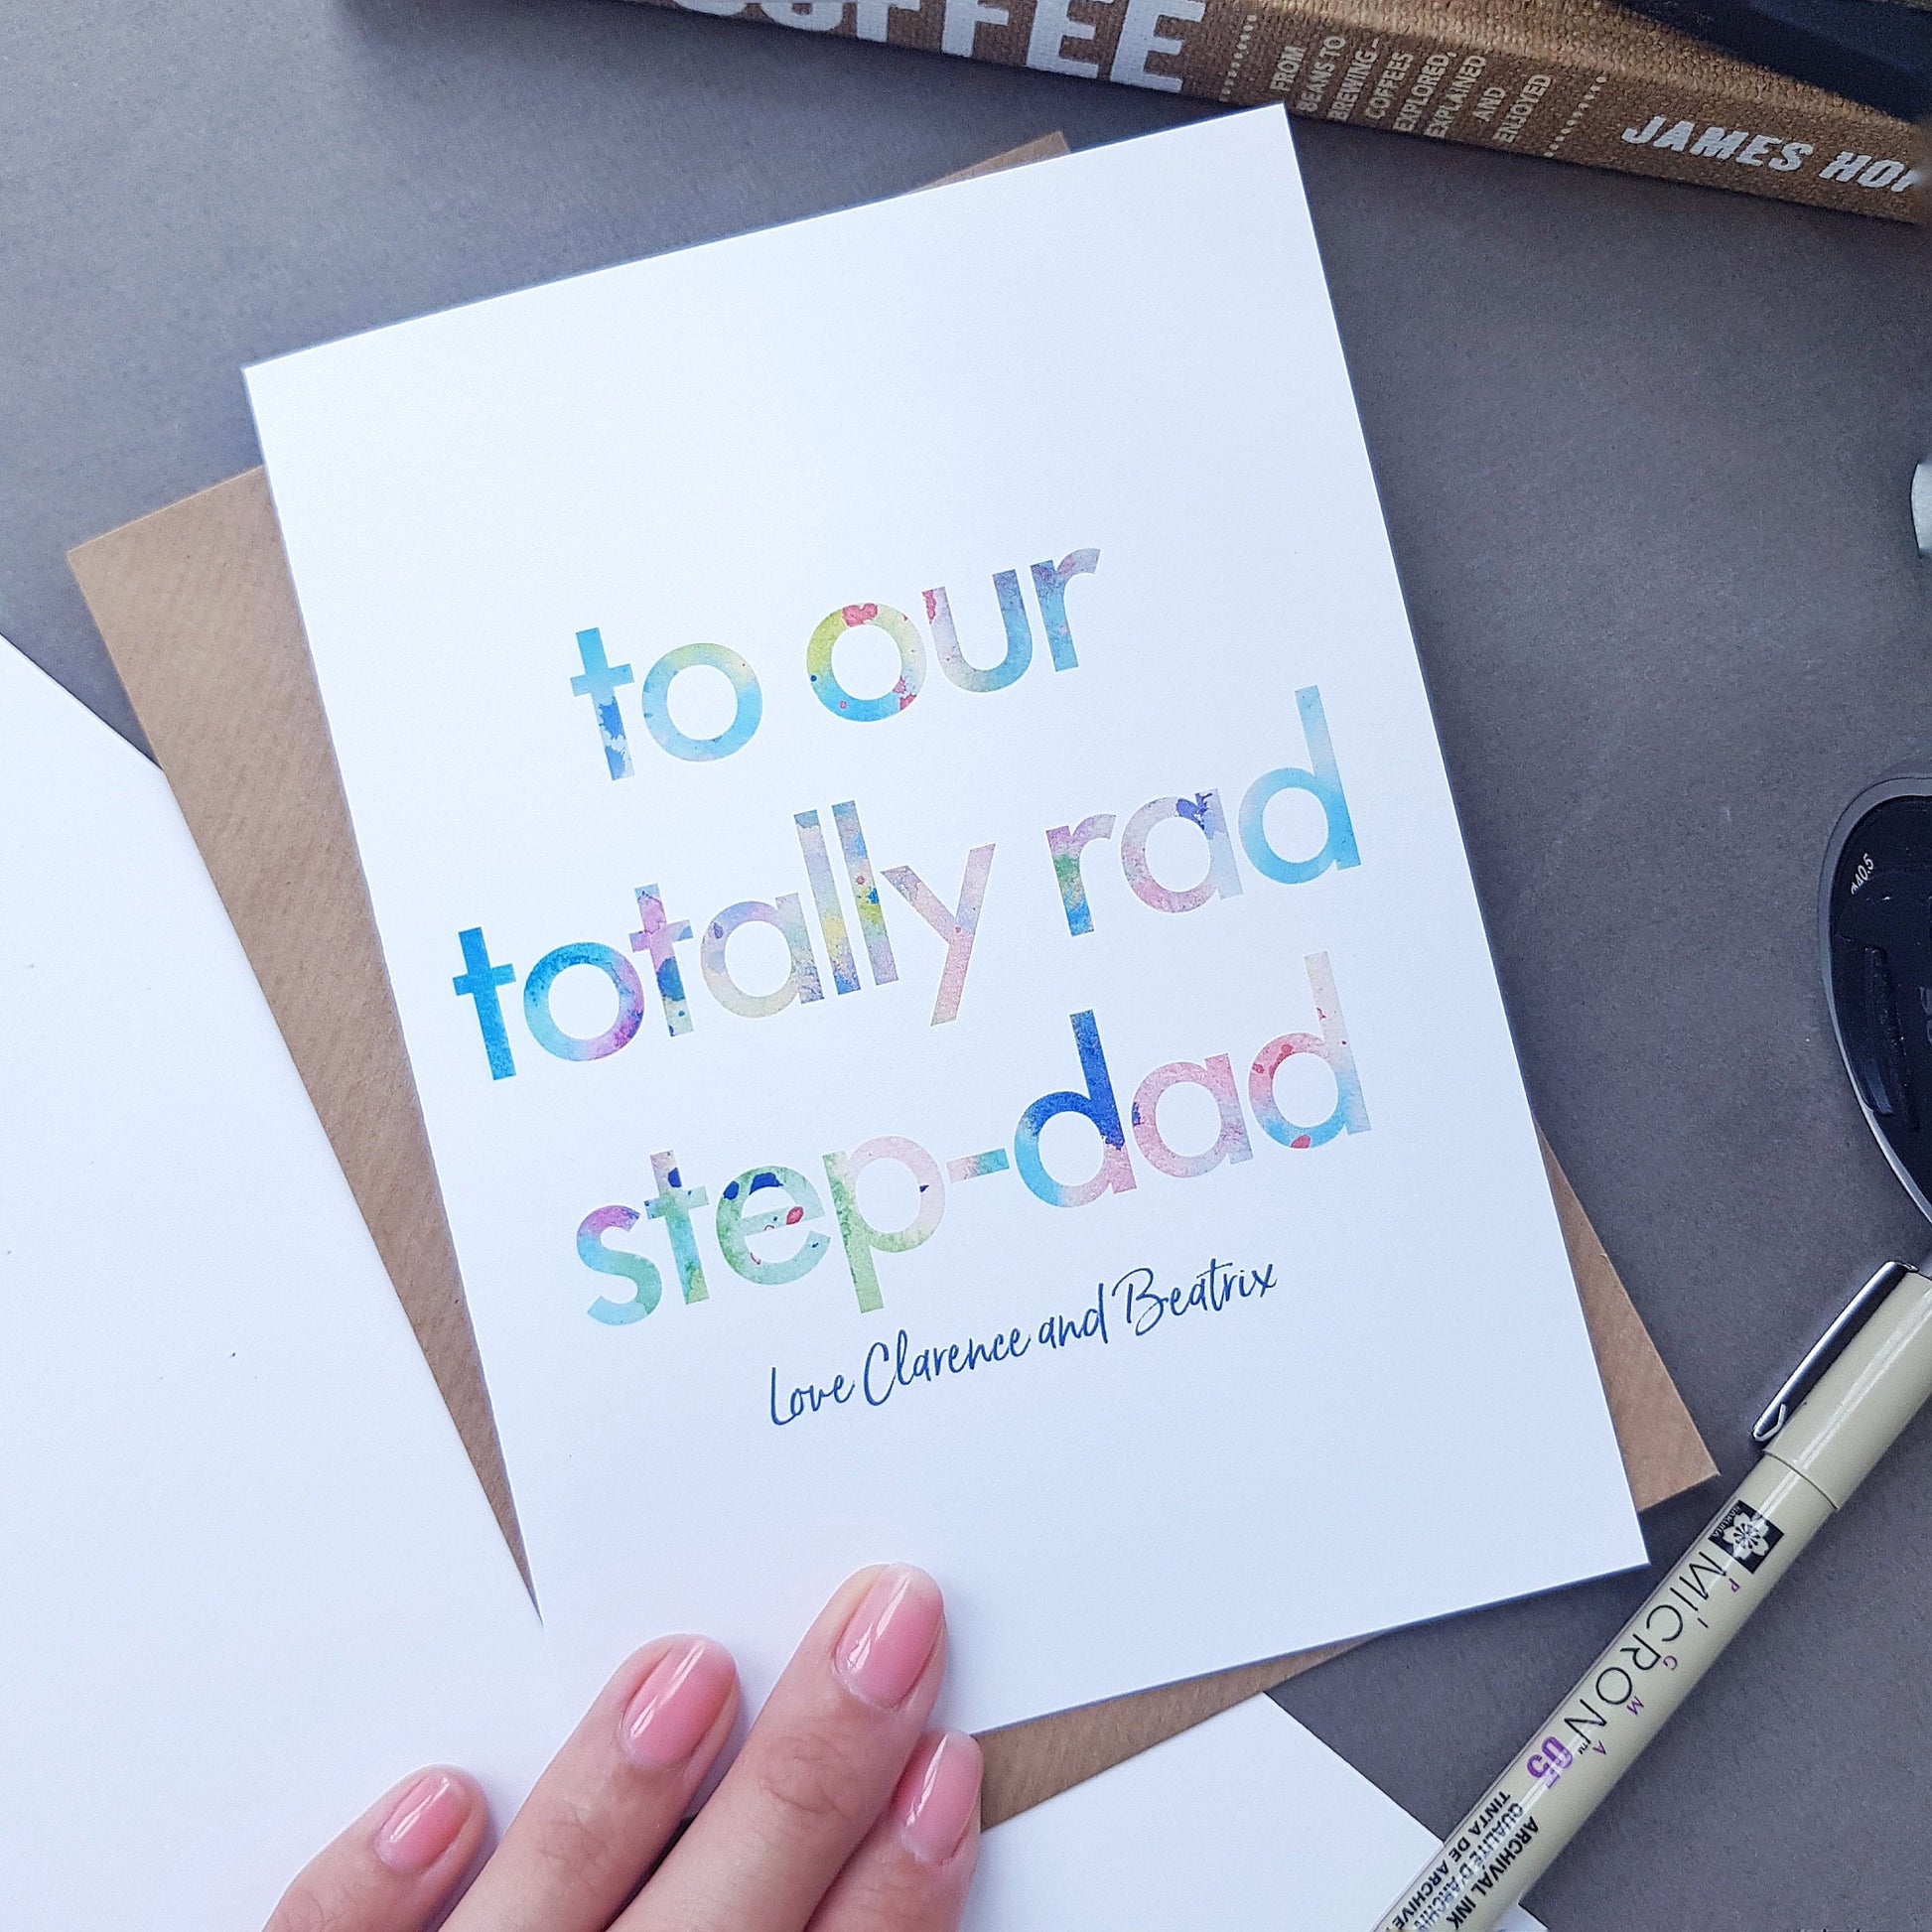 COFFEE
FROM
BEANS TO
BREWING –
COFFEES
EXPLORED,
EXPLAINED
AND
ENJOYED
JAMES
to our
totally rad
step-dad
Love Clarence and Beatrix
PIGMA
MICRON™ 05
ARCHIVAL INK
TINTA DE